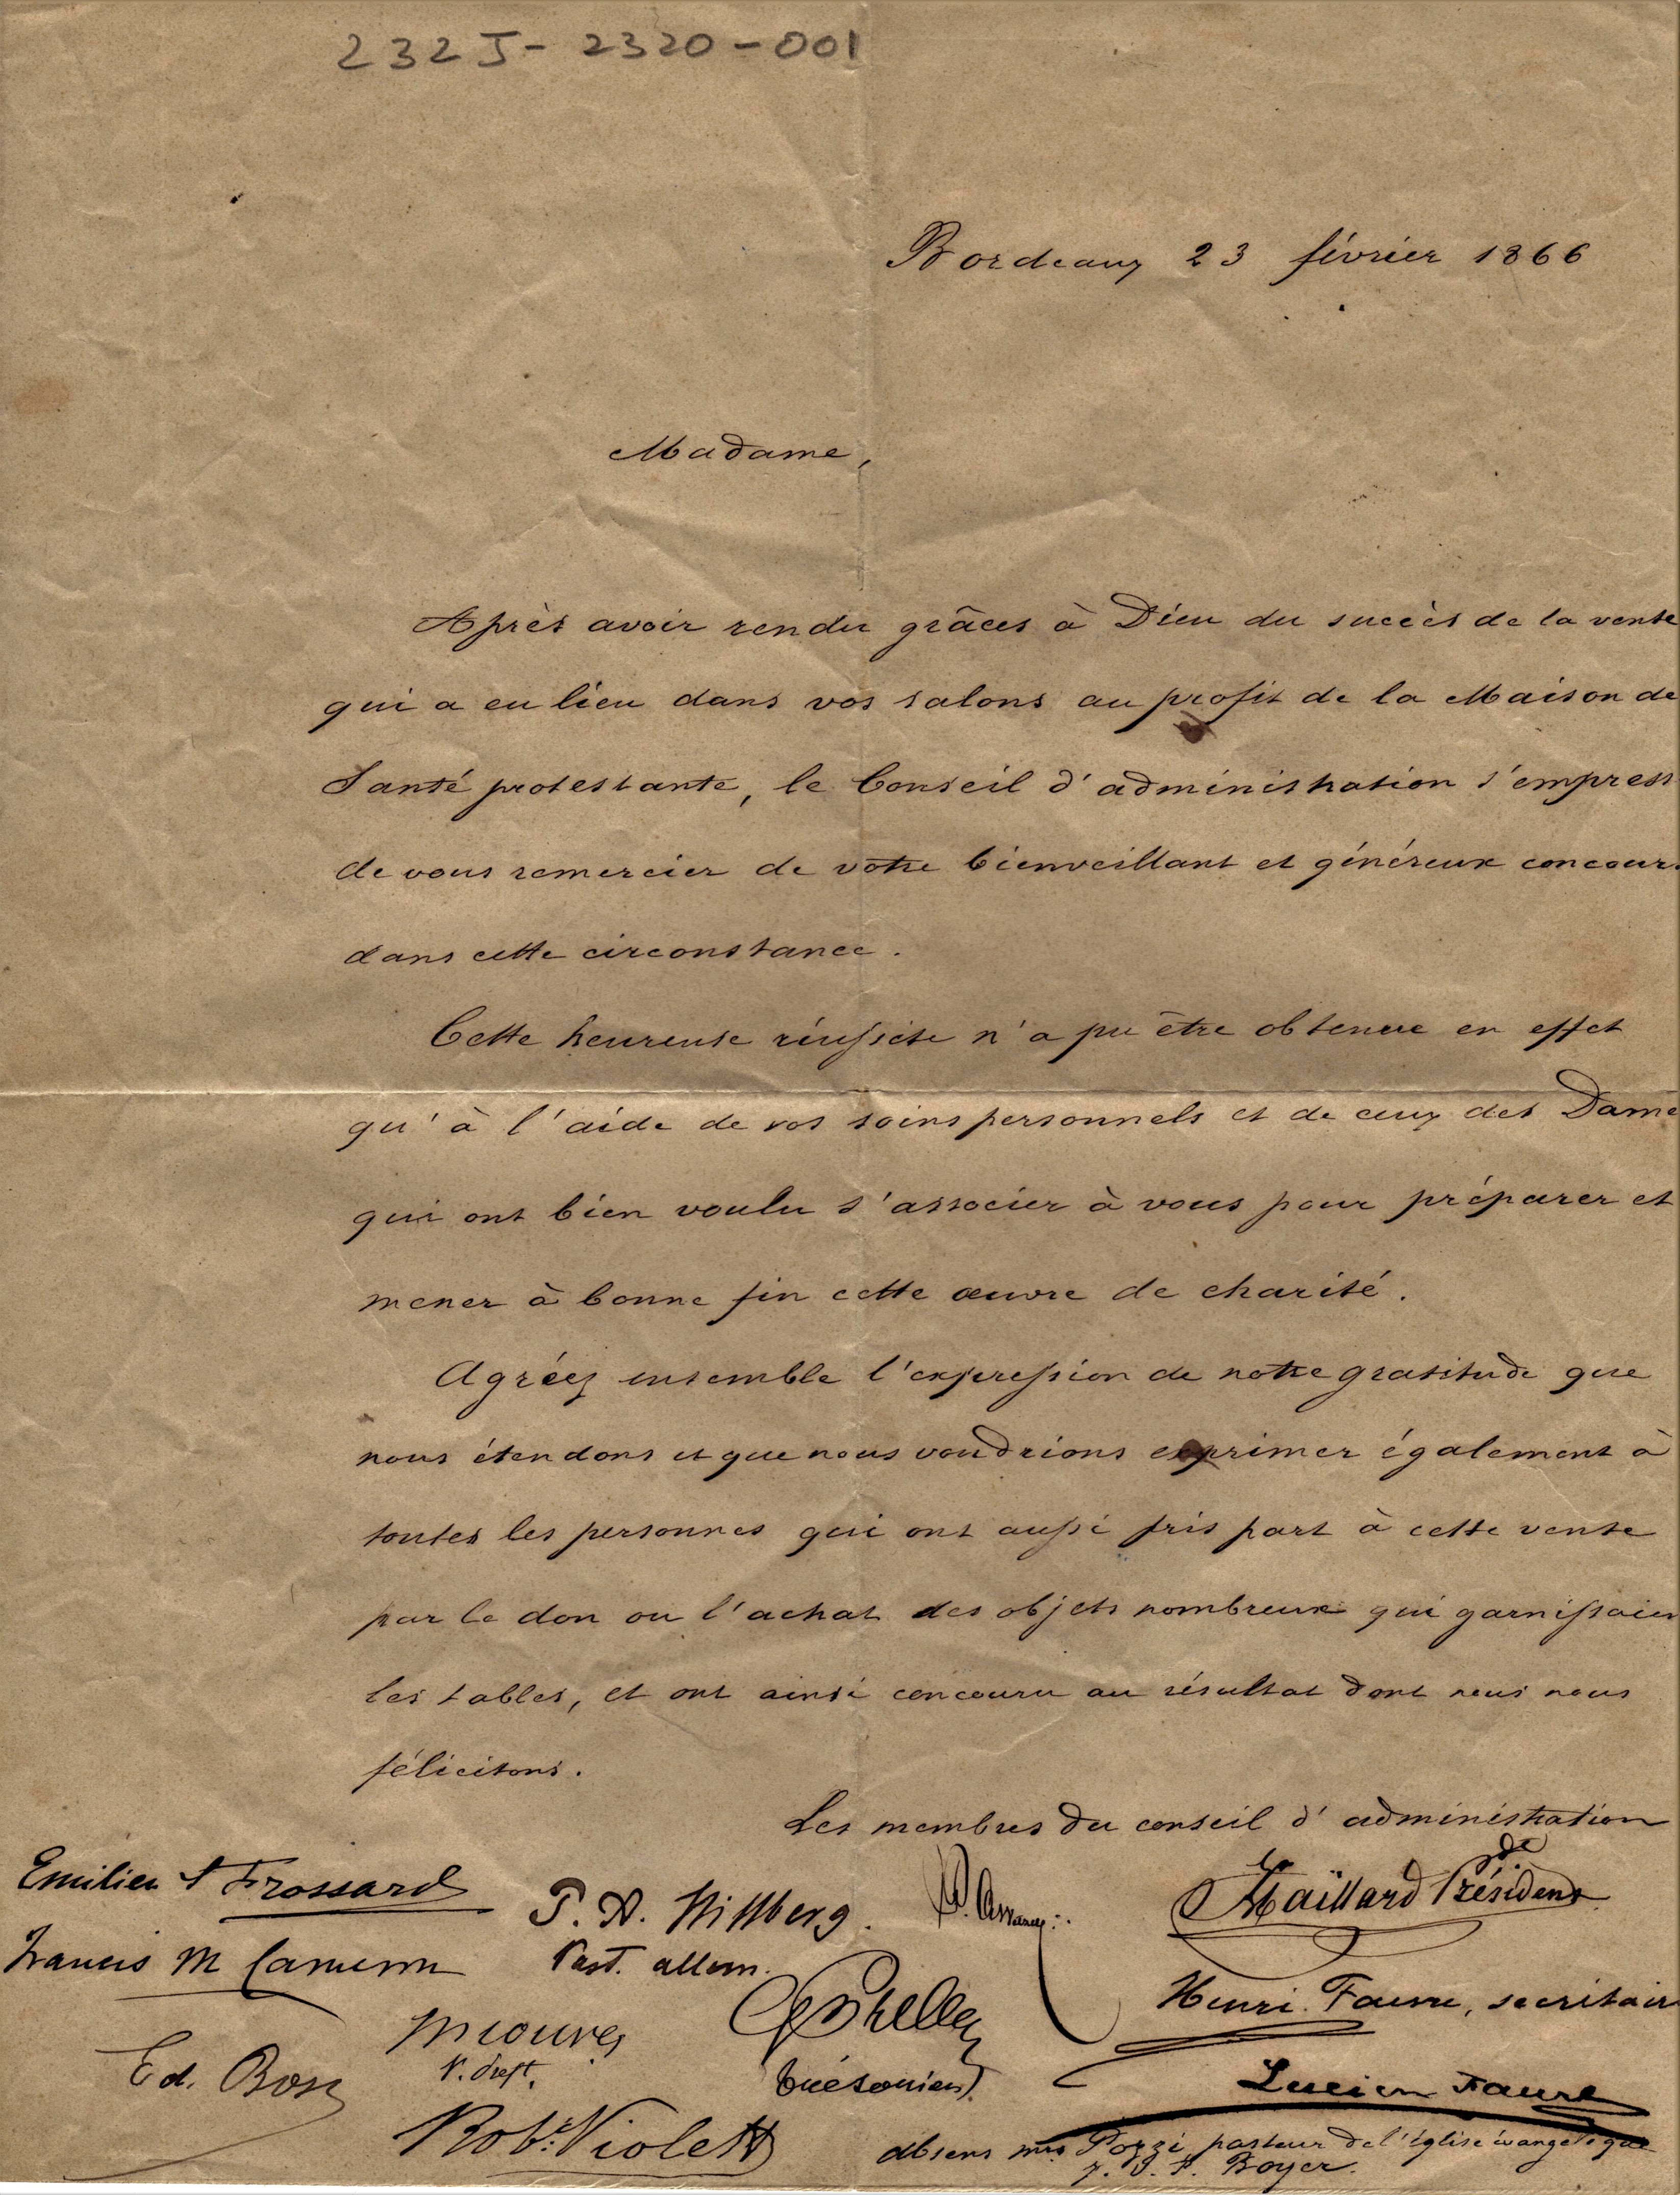 232 J - 2320 - 001
Bordeaux 23 février 1866
Madame,
Après avoir rendu grâces à Dieu du succès de la vente
qui a eu lieu dans vos salons au profit de la Maison de
Santé protestante, le Conseil d'administration s'empress
de vous remercier de votre bienveillant et généreux concours
dans cette circonstance.
Cette heureuse réussite n'a pu être obtenue en effet
qu'à l'aide de vos soins personnels et de ceux des Dame
qui ont bien voulu s'associer à vous pour préparer et
mener à bonne fin cette œuvre de charité.
Agréez ensemble l'expression de notre gratitude que
nous étendons et que nous voudrions exprimer également à
toutes les personnes qui ont aussi pris part à cette vente
par le don ou l'achat des objets nombreux qui garnissaien
les tables, et ont ainsi concouru au résultat dont nous nous
félicitons.
Les membres du conseil d'administration
Emilien Frossard
P. A. Hillberg.
Past. allem.
Maillard Président
Francis M Cameron
Henri Faure, secrétair
Ed. Boss
trésorier
Lucien Faure
Robt. Violett
absens mrs Pozzi, pasteur de l'église évangélique
J. Boyer.